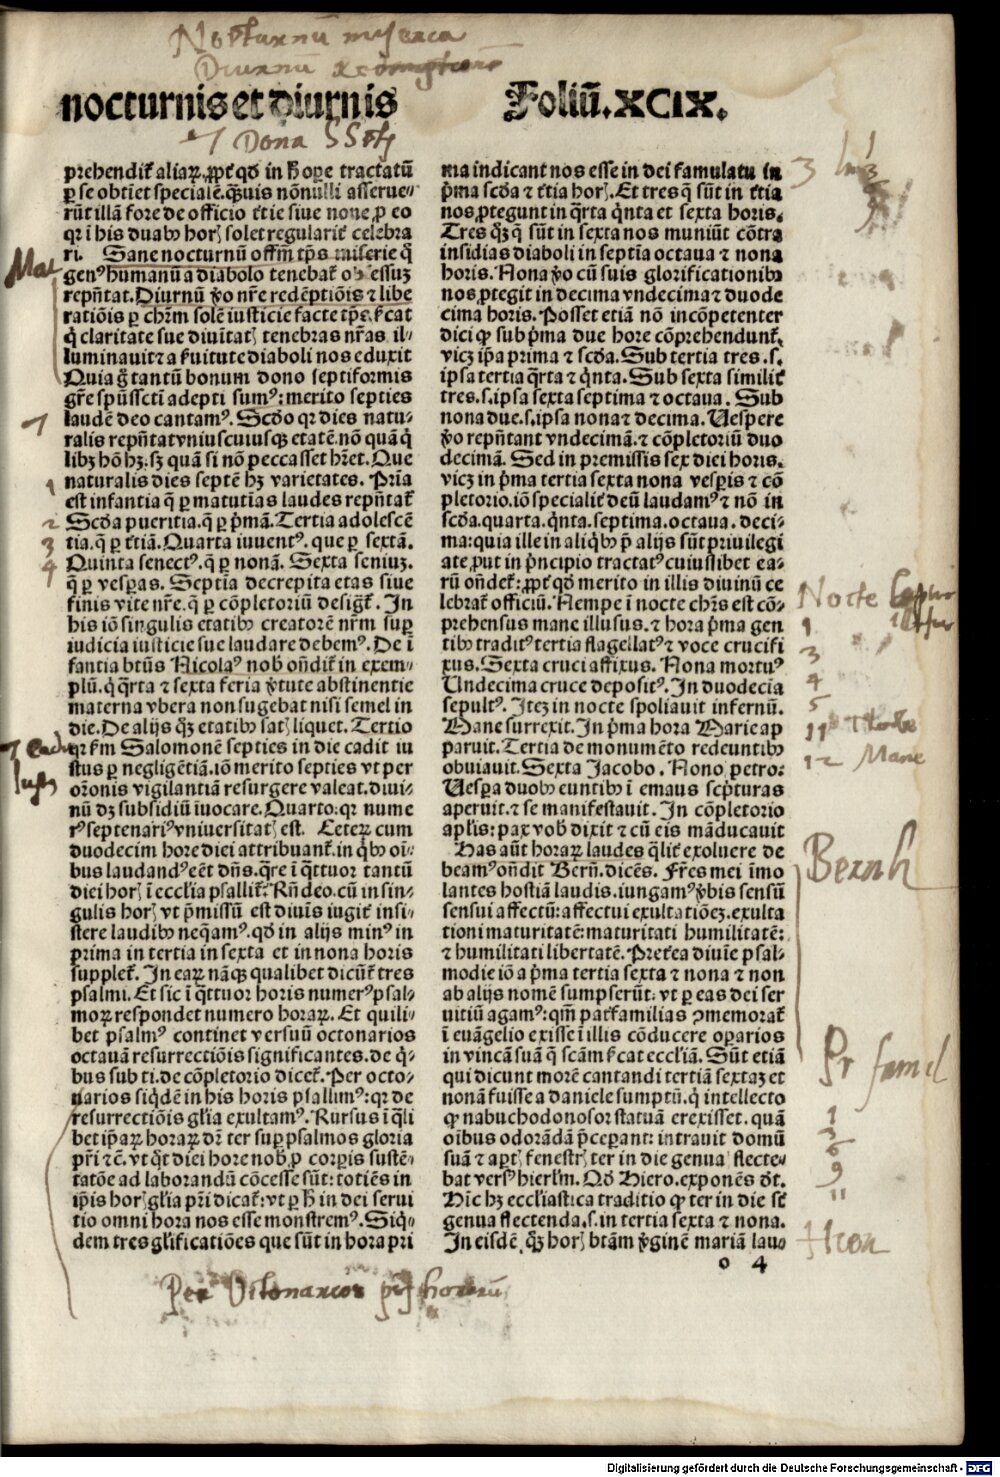 nocturnis et diurnis
Foliū.XCIX.
7 Dona SS
prehendit᷑ aliaꝝ.ꝓpt᷑ qđ in h̄ oꝑe tractatū
ꝑ se obtīet speciale.qᷓuis nōnulli asserue⸗
rūt illā fore de officio t᷑tie siue none.ꝓ eo
qꝛ ī his duabꝫ hoꝝ solet regularit᷑ celebra
ri. Sane nocturnū offm̄ tp̄s miserie q̄
gen⁹ humanū a diabolo tenebat᷑ obsessuꝫ
rep̄ntat. Diurnū ꝟo nr̄e redēptiōis ⁊ libe
ratiōis ꝑ chr̄m solē iusticie facte
q̇ claritate sue diuītatꝭ tenebras nr̄as il⸗
luminauit ⁊ a ẜuitute diaboli nos eduxit
Quia g̊ tantū bonum dono septiformis
gr̄e sp̄ussctī adepti sum⁹: merito septies
laudē deo cantam⁹. Scđo qꝛ dies natu⸗
ralis rep̄ntat vniuscuiusqꝫ etatē. nō quā q̇
libꝫ hō hꝫ. sꝫ quā si nō peccasset hr̄et. Que
naturalis dies septē hꝫ varietates. Pria
est infantia q̄ ꝑ matutīas laudes rep̄ntat᷑
Scđa pueritia. q̄ ꝑ pⁱmā. Tertia adolescē
tia. q̄ ꝑ t᷑tiā. Quarta iuuent⁹. que ꝑ sextā.
Quinta senect⁹. q̄ ꝑ nonā. Sexta seniuꝫ.
q̄ ꝑ vesꝑas. Septīa decrepita etas siue
finis vite nr̄e. q̄ ꝑ cōpletoriū desigt᷑. In
his iō singulis etatibꝫ creatorē nr̄m suꝑ
iudicia iusticie sue laudare debem⁹. De ī
fantia btūs Nicola⁹ nob̄ ōndit᷑ in exem⸗
plū. q̇ q̄rta ⁊ sexta feria ꝟtute abstinentie
materna vbera non sugebat nisi semel in
die. De alijs qꝫ etatibꝫ satꝭ liquet. Tertio
qꝛ ẜm Salomonē septies in die cadit iu
stus ꝑ negligētiā. iō merito septies vt per
oꝛōnis vigilantiā resurgere valeat. diui⸗
nū dꝫ subsidiū īuocare. Quarto: qꝛ nume
r⁹ septenari⁹ vniuersitatꝭ est. Ceteꝝ cum
duodecim hore diei attribuant᷑. in q̇bꝫ oī⸗
bus laudand⁹ eēt dn̄s. q̄re ī q̄ttuor tantū
diei horꝭ ī ecclīa psallit᷑: Rn̄deo. cū in sin⸗
gulis horꝭ vt p̄missū est diuīs iugit᷑ insi⸗
stere laudibꝫ neq̄am⁹. qđ in alijs min⁹ in
prima in tertia in sexta et in nona horis
supplet᷑. In eaꝝ nāqꝫ qualibet dicūt᷑ tres
psalmi. Et sic ī q̄ttuor horis numer⁹ psal⸗
moꝝ respondet numero horaꝝ. Et quili⸗
bet psalm⁹ continet versuū octonarios
octauā resurrectiōis significantes. de q̇⸗
bus sub ti. de cōpletorio dicet᷑. Per octo⸗
narios siqͥdē in his horis psallim⁹: qꝛ de
resurrectiōis glīa exultam⁹. Rursus ī q̄li
bet ip̄aꝝ horaꝝ dr̄ ter suꝑ psalmos gloria
pr̄i ⁊ē. vt q̊t diei hore nob̄ ꝓ corꝑis sustē⸗
tatōe ad laborandū cōcesse sūt: totiēs in
ip̄is horꝭ glīa pr̄i dicat᷑: vt ꝑ h̄ in dei serui
tio omni hora nos esse monstrem⁹. Siqͥ⸗
dem tres glificatiōes que sūt in hora pri
ma indicant nos esse in dei famulatu in
pⁱma scđa ⁊ t᷑tia horꝭ. Et tres q̄ sūt in t᷑tia
nos ꝓtegunt in q̄rta q̇nta et sexta horis.
Tres qꝫ q̄ sūt in sexta nos muniūt cōtra
insidias diaboli in septīa octaua ⁊ nona
horis. Nona ꝟo cū suis glorificationibꝫ
nos ꝓtegit in decima vndecima ⁊ duode
cima horis. Posset etiā nō incōpetenter
dici ꝙ sub pⁱma due hore cōprehendunt᷑.
vicꝫ ip̄a prima ⁊ scđa. Sub tertia tres .s.
ipsa tertia q̄rta ⁊ q̇nta. Sub sexta similit᷑
tres .s. ipsa sexta septima ⁊ octaua. Sub
nona due .s. ipsa nona ⁊ decima. Uespere
ꝟo rep̄ntant vndecimā. ⁊ cōpletoriū duo
decimā. Sed in premissis sex diei horis.
vicꝫ in pⁱma tertia sexta nona vesꝑis ⁊ cō
pletorio. iō specialit᷑ deū laudam⁹ ⁊ nō in
scđa. quarta. q̇nta. septima. octaua. deci⸗
ma: quia ille in aliq̇bꝫ p̄ alijs sūt priuilegi
ate. put in pⁱncipio tractat⁹ cuiuslibet ea⸗
rū ōndet᷑: ꝓpt᷑ qđ merito in illis diuinū ce
lebrat᷑ officiū. Nempe ī nocte chr̄s est cō⸗
prehensus mane illusus. ⁊ hora pⁱma gen
tibꝫ tradit⁹ tertia flagellat⁹ ⁊ voce crucifi
xus. Sexta cruci affixus. Nona mortu⁹
Undecima cruce deposit⁹. In duodecīa
sepult⁹. Iteꝫ in nocte spoliauit infernū.
Mane surrexit. In pⁱma hora Marie ap
paruit. Tertia de monumēto redeuntibꝫ
obuiauit. Sexta Jacobo. Nono petro:
Uesꝑa duobꝫ euntibꝫ ī emaus scⁱpturas
aperuit. ⁊ se manifestauit. In cōpletorio
apl̄is: pax vob̄ dixit ⁊ cū eis māducauit
Has aūt horaꝝ laudes q̄lit᷑ exoluere de
beam⁹ ōndit Bern̄. dicēs. Fr̄es mei īmo
lantes hostiā laudis. iungam⁹ ꝟbis sensū
sensui affectū: affectui exultatiōeꝫ. exulta
tioni maturitatē: maturitati humilitatē:
⁊ humilitati libertatē. Pret᷑ea diuīe psal⸗
modie iō a pⁱma tertia sexta ⁊ nona ⁊ non
ab alijs nomē sumpserūt: vt ꝑ eas dei ser
uitiū agam⁹: qm̄ pat᷑familias ꝯmemorat᷑
ī euāgelio exisse ī illis cōducere oꝑarios
in vineā suā q̄ scām ẜcat ecclīā. Sūt etiā
qui dicunt morē cantandi tertiā sextaꝫ et
nonā fuisse a daniele sumptū. q̇ intellecto
ꝙ nabuchodonosor statuā erexisset. quā
oībus odorādā p̄ceꝑant: intrauit domū
suā ⁊ aꝑtꝭ fenestrꝭ ter in die genua flecte⸗
bat vers⁹ hierlm̄. Qđ Hiero. exponēs dt̄.
Hīc hꝫ ecclīastica traditio ꝙ ter in die st᷑
genua flectenda .s. in tertia sexta ⁊ nona.
In eisdē qꝫ horꝭ btām ꝟginē mariā lau⸗
o 4
Mat
7
1
2
3
4
3
Nocte
1
3
4
5
11
12 Mane
Bernh
Pr famil
1
3
6
9
11
Per Octonarios horarū
Digitalisierung gefördert durch die Deutsche Forschungsgemeinschaft - DFG